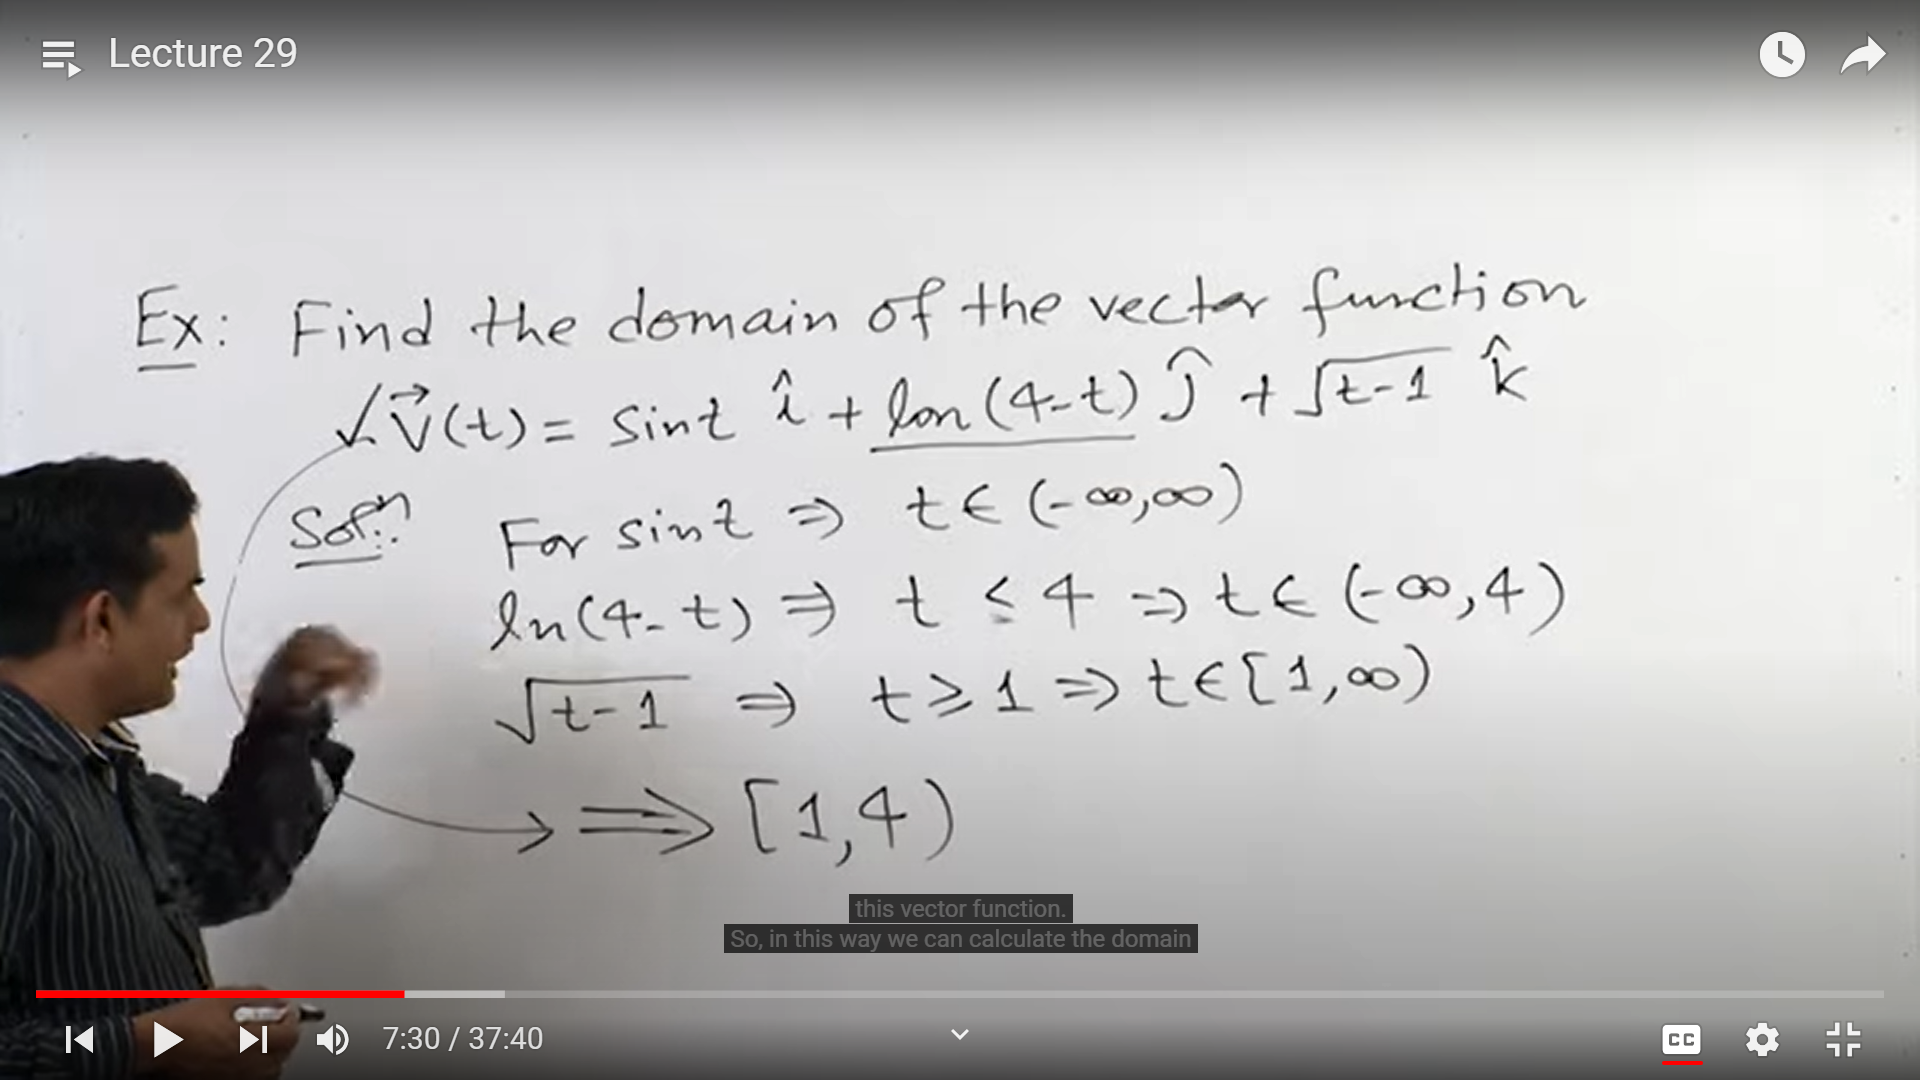 Lecture 29
Ex: Find the domain of the vector function
✓ v⃗(t) = sint î + lon(4-t) ĵ + √t-1 k̂
Solⁿ: For sint ⇒ t ∈ (-∞,∞)
ln(4-t) ⇒ t ≤ 4 ⇒ t ∈ (-∞,4)
√t-1 ⇒ t ≥ 1 ⇒ t ∈ [1,∞)
⟹ [1,4)
this vector function.
So, in this way we can calculate the domain
7:30 / 37:40
CC